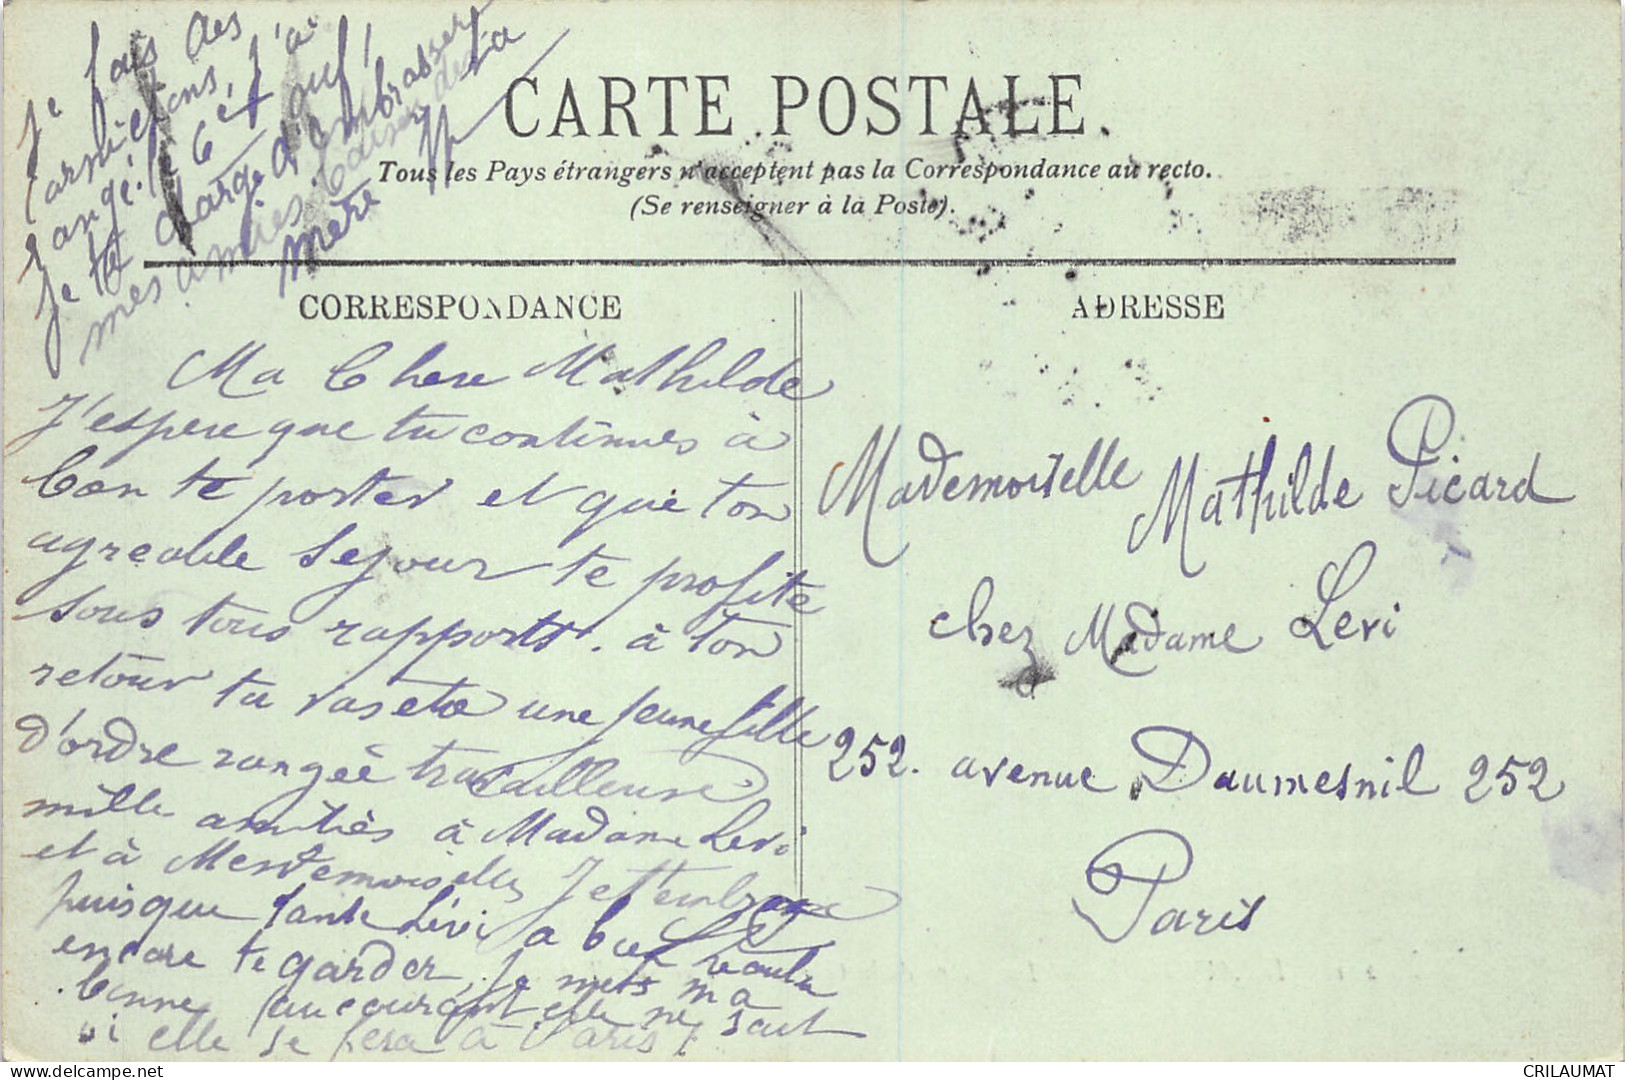 Je fais des
cornichons, j'ai
rangé. le 6e
Je te charge d'embrasser
mes amies.
mère
CARTE POSTALE.
Tous les Pays étrangers n'acceptent pas la Correspondance au recto.
(Se renseigner à la Poste).
CORRESPONDANCE
ADRESSE
Ma Chere Mathilde
J'espere que tu continues à
bon te porter et que ton
agreable sejour te profite
sous tous rapports. à ton
retour tu vas etre une jeune fille
d'ordre rangée travailleuse
mille amitiès à Madame Levi
et à Mesdemoiselles Je t'embrasse
puisque tante Lévi a bien voulu
encore te garder, je mets ma
bonne au courant, elle ne sait
si elle se fera à Paris,
Mademoiselle Mathilde Picard
chez Madame Levi
252. avenue Daumesnil 252
Paris
delcampe.net
CRILAUMAT